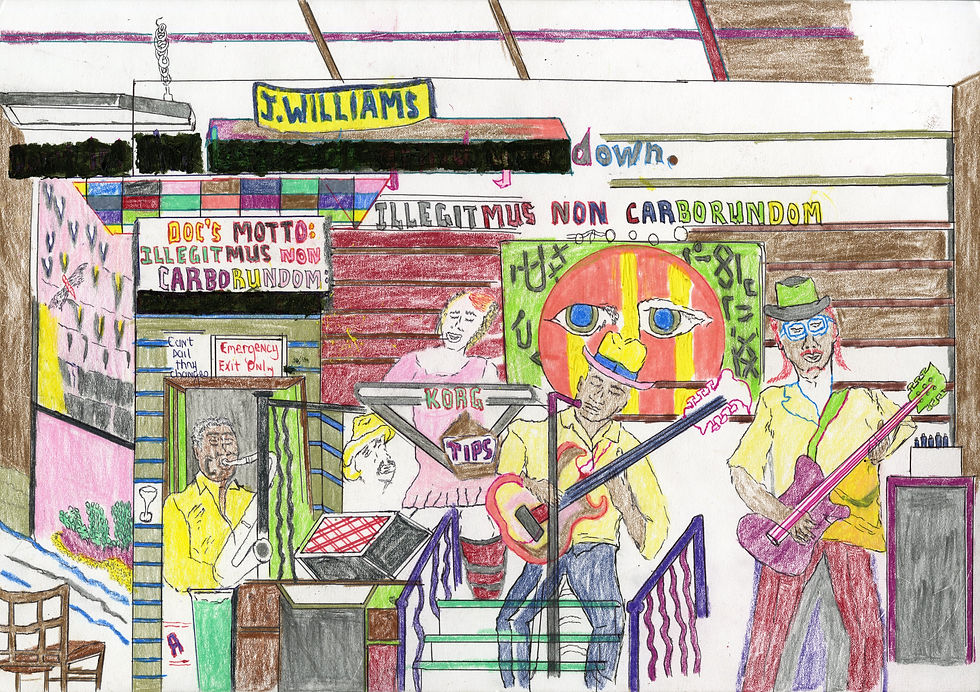 J.WILLIAMS
down.
ILLEGITMUS NON CARBORUNDOM
DOC'S MOTTO:
ILLEGITMUS NON
CARBORUNDOM:
Can't
Emergency
Exit Only
KORG
TIPS
A